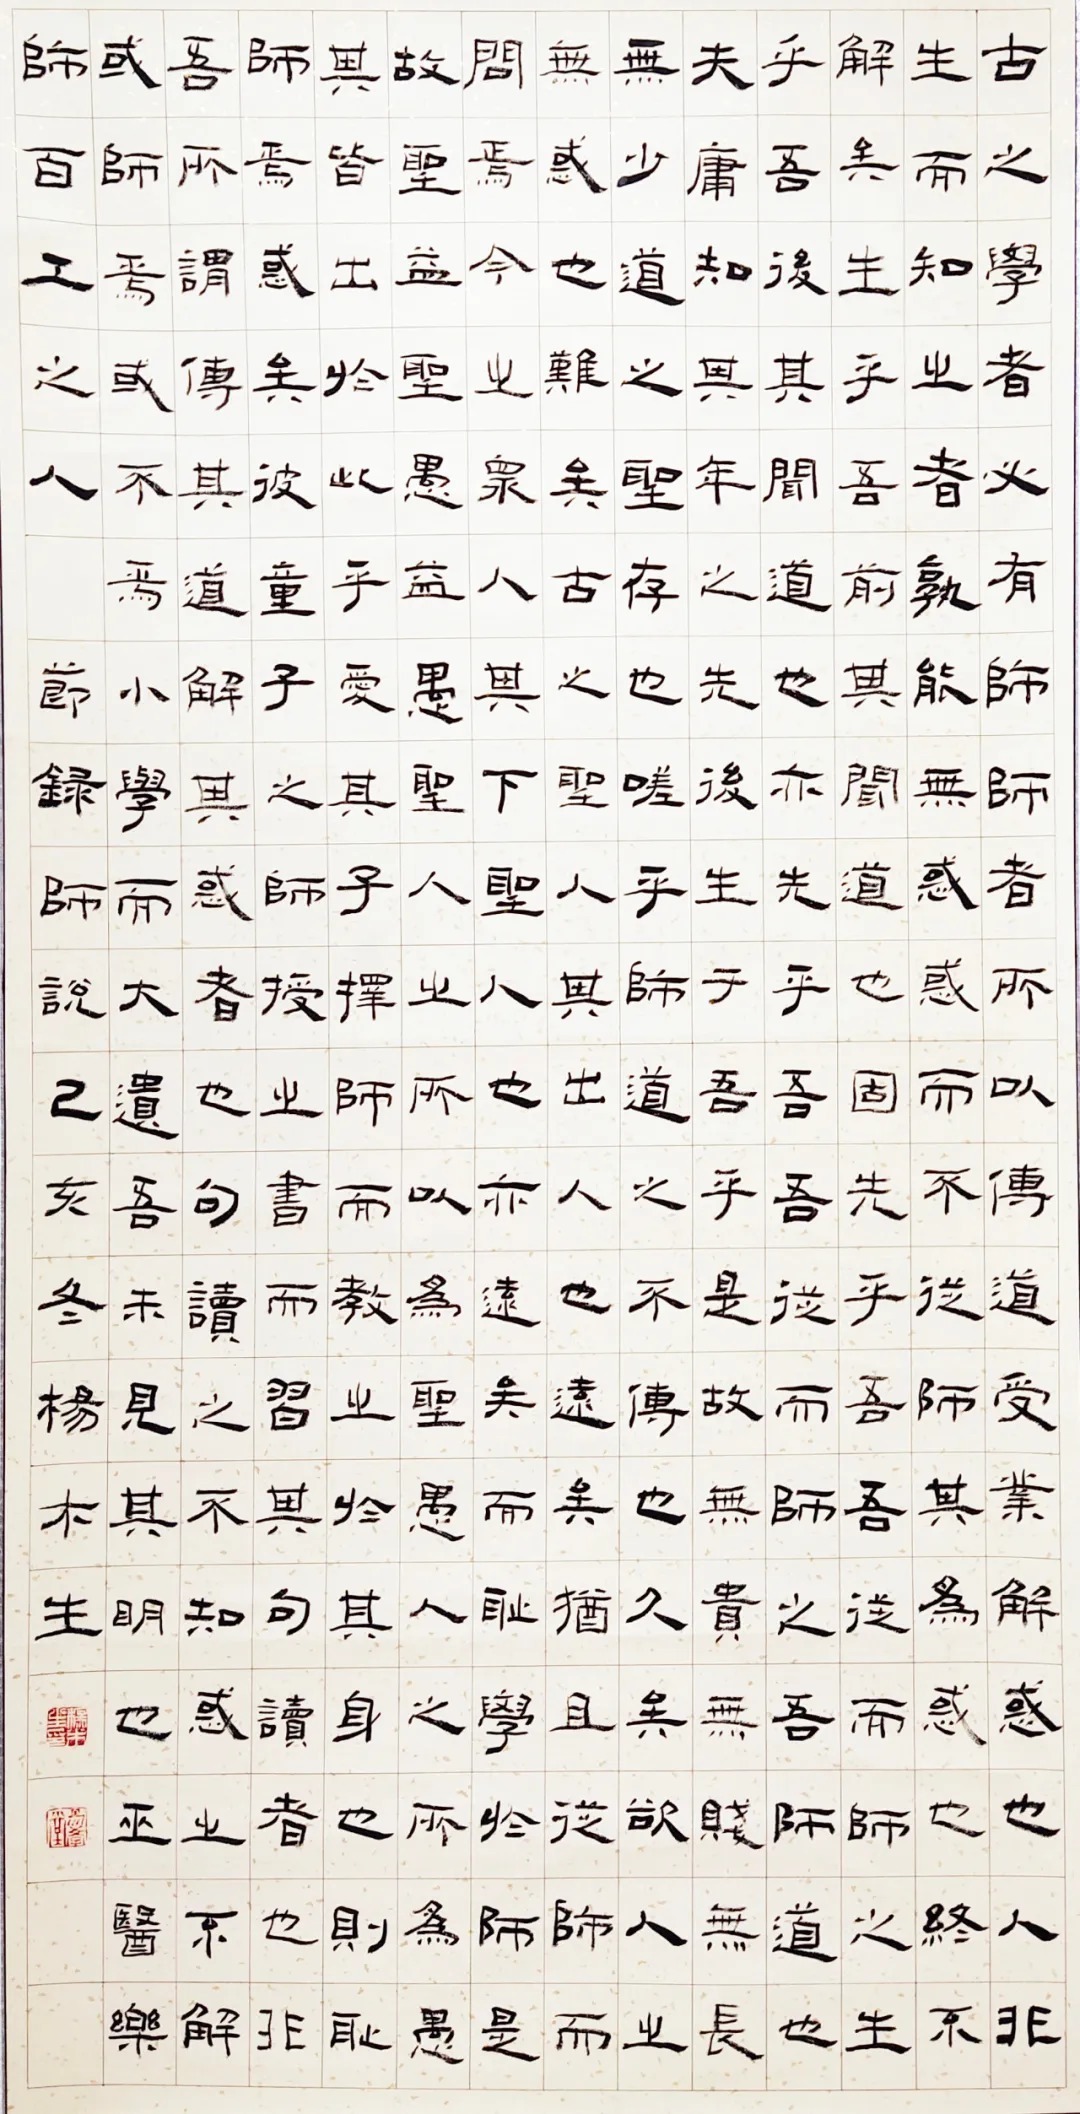 古之學者必有師師者所以傳道受業解惑也人非
生而知之者孰能無惑惑而不從師其爲惑也終不
解矣生乎吾前其聞道也固先乎吾吾從而師之生
乎吾後其聞道也亦先乎吾吾從而師之吾師道也
夫庸知其年之先後生于吾乎是故無貴無賤無長
無少道之聖存也嗟乎師道之不傳也久矣欲人之
無惑也難矣古之聖人其出人也遠矣猶且從師而
問焉今之衆人其下聖人也亦遠矣而耻學於師是
故聖益聖愚益愚聖人之所以爲聖愚人之所爲愚
其皆出於此乎愛其子擇師而教之於其身也則耻
師焉惑矣彼童子之師授之書而習其句讀者也非
吾所謂傳其道解其惑者也句讀之不知惑之不解
或師焉或不焉小學而大遺吾未見其明也巫醫樂
師百工之人 節録師説己亥冬楊木生